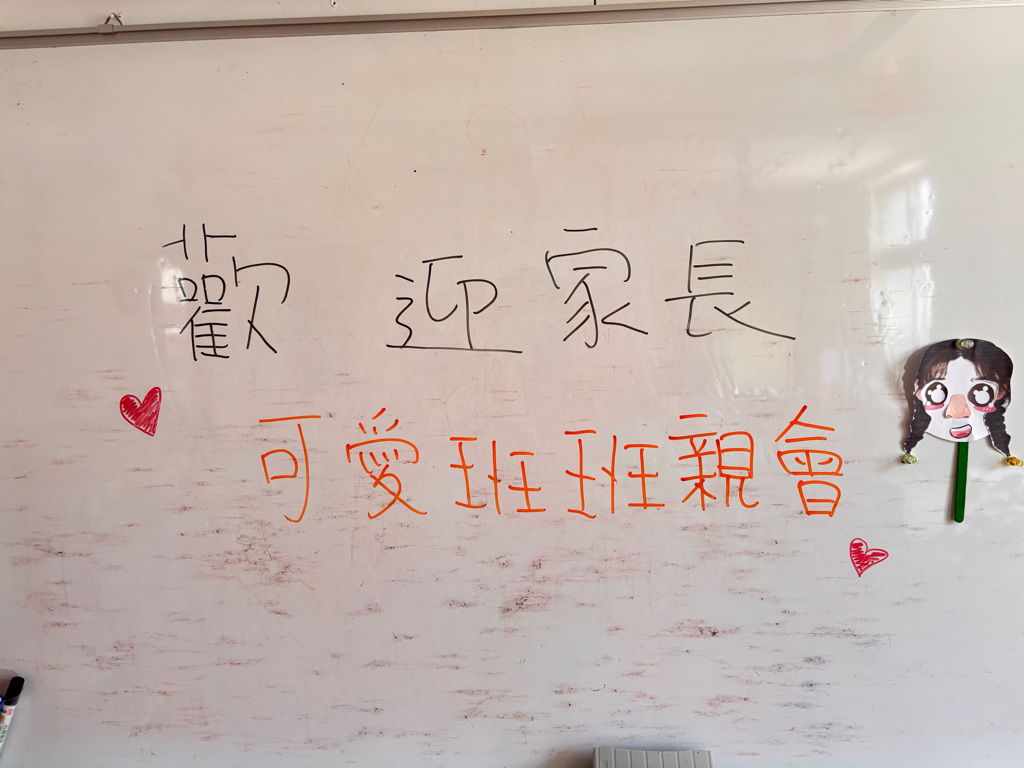 歡迎家長
可愛班班親會